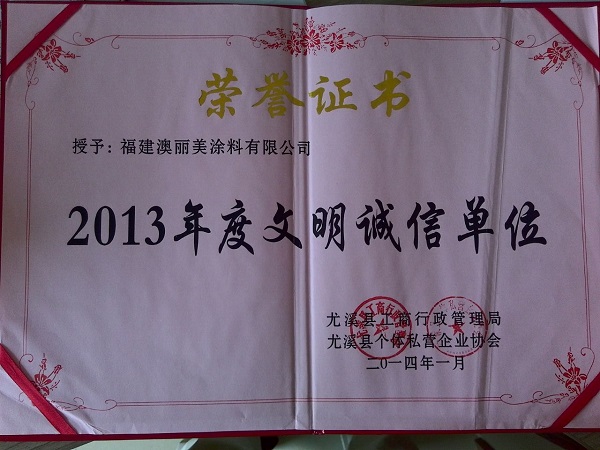 荣誉证书
授予：福建澳丽美涂料有限公司
2013年度文明诚信单位
尤溪县工商行政管理局
尤溪县个体私营企业协会
二〇一四年一月